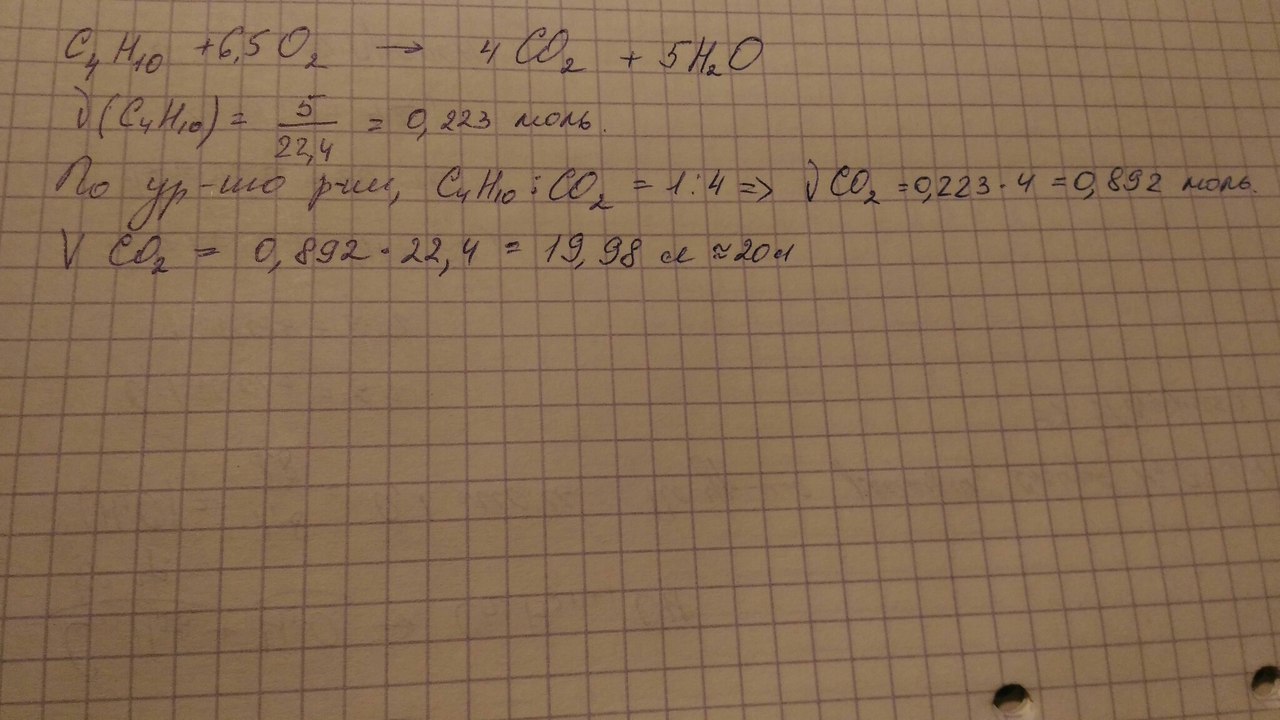 C₄H₁₀ + 6,5O₂ → 4CO₂ + 5H₂O
ν(C₄H₁₀) = 5/22,4 = 0,223 моль.
По ур-ию р-ии, C₄H₁₀ : CO₂ = 1:4 => ν CO₂ = 0,223 · 4 = 0,892 моль.
V CO₂ = 0,892 · 22,4 = 19,98 л ≈ 20 л